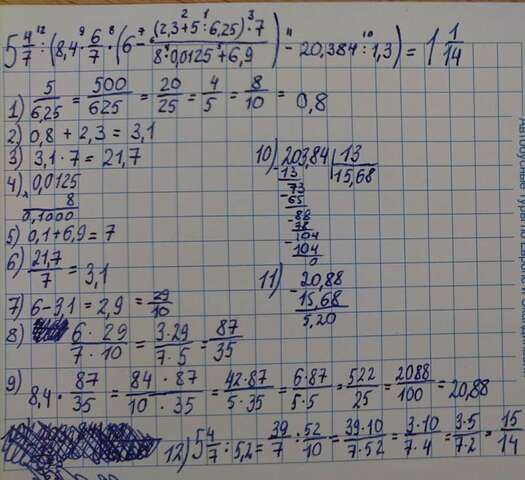 5 4/7 : (8,4 · 6/7 · (6 - (2,3 + 5 : 6,25) · 7 / 8 · 0,0125 + 6,9) - 20,384 : 1,3) = 1 1/14
1) 5/6,25 = 500/625 = 20/25 = 4/5 = 8/10 = 0,8
2) 0,8 + 2,3 = 3,1
3) 3,1 · 7 = 21,7
4) 0,0125
x 8
0,1000
5) 0,1 + 6,9 = 7
6) 21,7/7 = 3,1
7) 6 - 3,1 = 2,9 = 29/10
8) 6 · 29/7 · 10 = 3 · 29/7 · 5 = 87/35
9) 8,4 · 87/35 = 84 · 87/10 · 35 = 42 · 87/5 · 35 = 6 · 87/5 · 5 = 522/25 = 2088/100 = 20,88
10) 203,84 | 13
- 13 15,68
73
- 65
- 88
78
- 104
104
0
11) - 20,88
15,68
5,20
12) 5 4/7 : 5,2 = 39/7 : 52/10 = 39 · 10/7 · 52 = 3 · 10/7 · 4 = 3 · 5/7 · 2 = 15/14